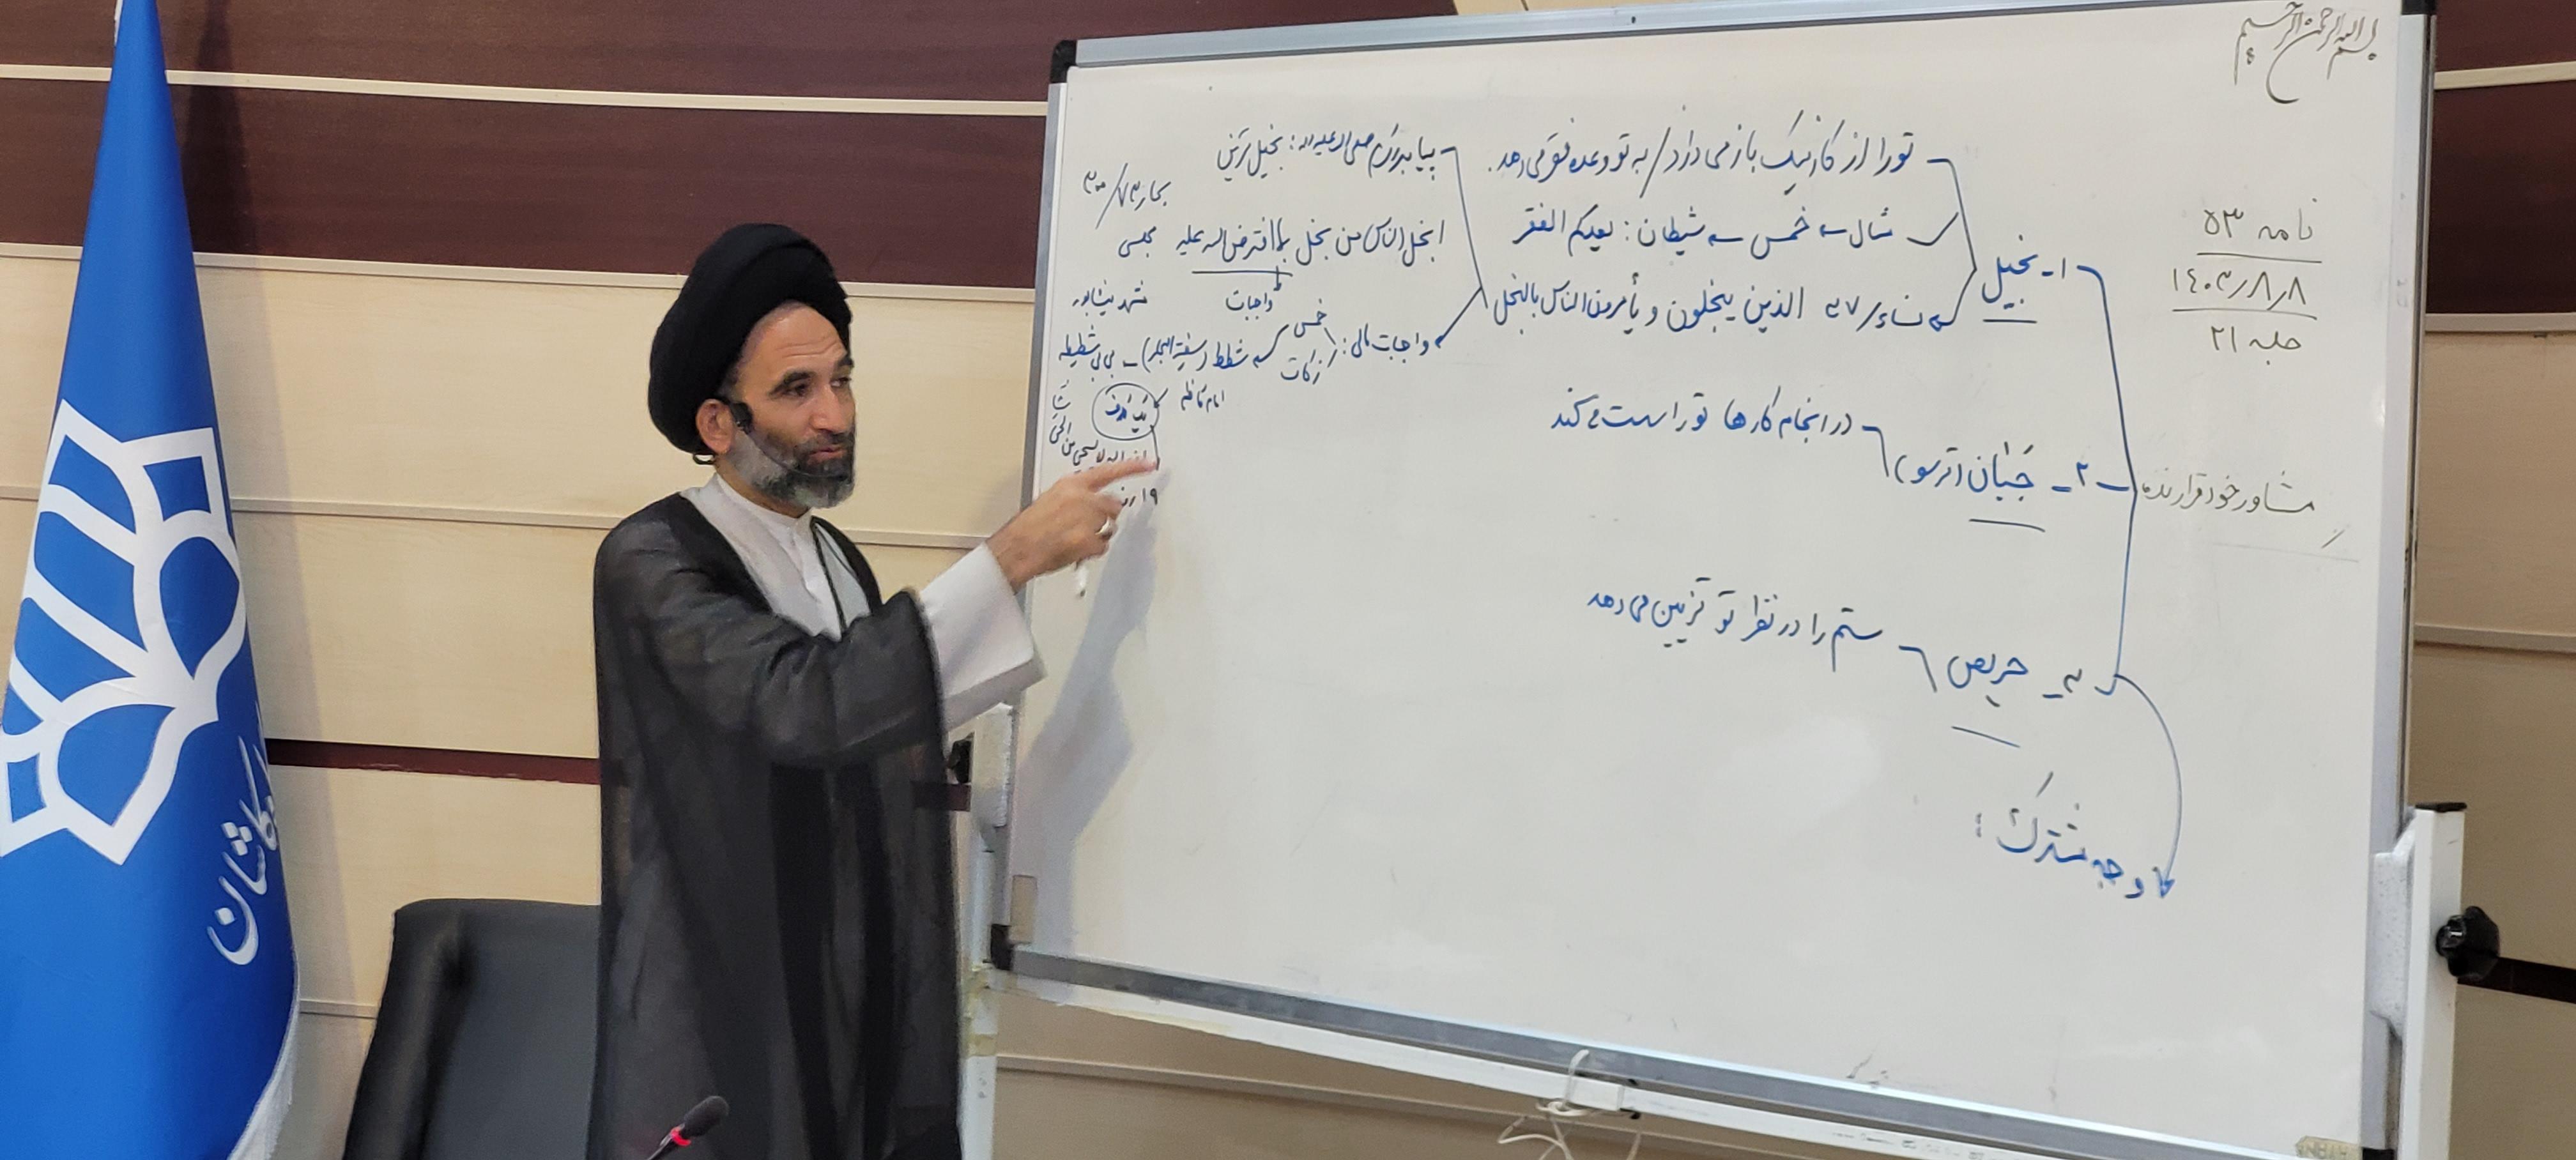 بسم الله الرحمن الرحیم
نامه ۵۳
۱۴۰۳/۸/۸
جلسه ۲۱
مشاور خود قرار نده
۱- بخیل
تو را از کار نیک باز می دارد / به تو وعده فقر می دهد.
مثال خمس شیطان: یعدکم الفقر
نساء/۳۷ الذین یبخلون و یأمرون الناس بالبخل
پیامبر اکرم صلی الله علیه و اله: بخیل ترین
ابخل الناس من بخل بما افترض الله علیه
بحار
مجلسی
واجبات
واجبات مالی: خمس
زکات
شطط (سفینة البحار) - بی بی شطیطه
نیشابور
امام کاظم
یک درهم
لا یستحیی من الحق
۲- جَبان (ترسو)
در انجام کارها تو را سست می کند
۳- حریص
ستم را در نظر تو تزیین می دهد
وجه مشترک:
کاشان